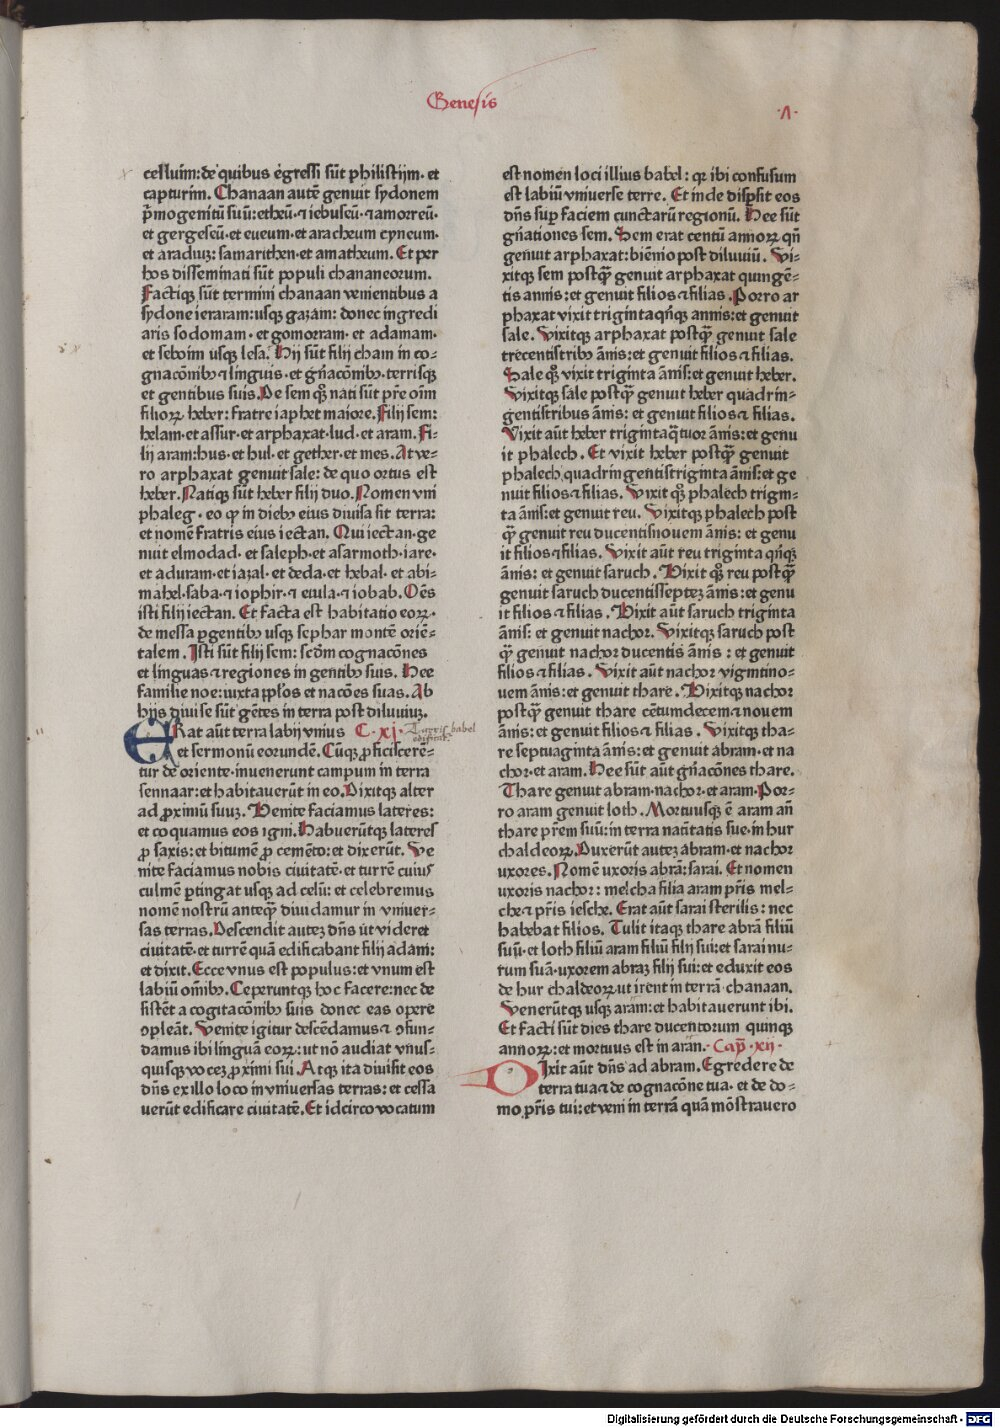 Genesis
·Λ·
celluim: de quibus egressi sūt philistijm· et
capturim. Chanaan autē genuit sydonem
p̄mogenitū suū: etheū· ⁊ iebuseū· ⁊ amorreū·
et gergeseū· et eueum· et aracheum cyneum·
et araduꝫ: samarithen· et amatheum. Et per
hos disseminati sūt populi chananeorum.
Factiqꝫ sūt termini chanaan venientibus a
sydone ieraram: usqꝫ gazam: donec ingredi
aris sodomam· et gomorram· et adamam·
et seboim usqꝫ lesa. Hij sūt filij cham in co-
gnacōnibꝰ ⁊ linguis· et gn̄acōnibꝰ· terrisqꝫ
et gentibus suis. De sem qꝫ nati sūt pr̄e oīm
filioꝝ heber: fratre iaphet maiore. Filij sem:
helam· et assur· et arphaxat· lud· et aram. Fi-
lij aram: hus· et hul· et gether· et mes. At ve-
ro arphaxat genuit sale: de quo ortus est
heber. Natiqꝫ sūt heber filij duo. Nomen vni
phaleg· eo ꝙ in diebꝰ eius diuisa sit terra:
et nomē fratris eius iectan. Qui iectan ge
nuit elmodad· et saleph· et asarmoth· iare·
et aduram· et iazal· et deda· et hebal· et abi-
mahel· saba· ⁊ iophir· ⁊ euila· ⁊ iobab. Oēs
isti filij iectan. Et facta est habitatio eoꝝ·
de messa ꝑgentibꝰ usqꝫ sephar montē oriē-
talem. Isti sūt filij sem: scdm̄ cognacōnes
et linguas ⁊ regiones in gentibꝰ suis. Hee
familie noe: iuxta pplos et nacōes suas. Ab
hijs diuise sūt gētes in terra post diluuiuꝫ.
ERat aūt terra labij vnius C· xi·
Turris babel
edificat̄
et sermonū eorundē. Cūqꝫ ꝓficiscerē-
tur de oriente· inuenerunt campum in terra
sennaar: et habitauerūt in eo. Dixitqꝫ alter
ad ꝓximū suuꝫ. Venite faciamus lateres:
et coquamus eos igni. Habuerūtqꝫ lateres
ꝓ saxis: et bitumē ꝓ cemēto: et dixerūt. Ve
nite faciamus nobis ciuitatē· et turrē cuius
culmē ꝑtingat usqꝫ ad celū: et celebremus
nomē nostrū anteqꝫ̄ diuidamur in vniuer-
sas terras. Descendit auteꝫ dn̄s ut videret
ciuitatē· et turrē quā edificabant filij adam:
et dixit. Ecce vnus est populus: et vnum est
labiū om̄ibꝰ. Ceperuntqꝫ hoc facere: nec de
sistēt a cogitacōnibꝰ suis donec eas opere
ꝯpleāt. Venite igitur descēdamus ⁊ ꝯfun-
damus ibi linguā eoꝝ: ut nō audiat vnus-
quisqꝫ voceꝫ ꝓximi sui. Atqꝫ ita diuisit eos
dn̄s ex illo loco in vniuersas terras: et cessa
uerūt edificare ciuitatē. Et idcirco vocatum
est nomen loci illius babel: qꝛ ibi confusum
est labiū vniuerse terre. Et inde disꝑsit eos
dn̄s suꝑ faciem cunctarū regionū. Hee sūt
gn̄ationes sem. Sem erat centū annoꝝ qn̄
genuit arphaxat: biēnio post diluuiū. Vi-
xitqꝫ sem postqꝫ̄ genuit arphaxat quingē-
tis annis: et genuit filios ⁊ filias. Porro ar
phaxat vixit trigintaqn̄qꝫ annis: et genuit
sale. Vixitqꝫ arphaxat postqꝫ̄ genuit sale
trecentistribꝰ ānis: et genuit filios ⁊ filias.
Sale qꝫ vixit triginta ānis: et genuit heber.
Vixitqꝫ sale postqꝫ̄ genuit heber quadrin-
gentistribus ānis: et genuit filios ⁊ filias.
Vixit aūt heber trigintaq̄tuor ānis: et genu
it phalech. Et vixit heber postqꝫ̄ genuit
phalech quadringentistriginta ānis: et ge
nuit filios ⁊ filias. Vixit qꝫ phalech trigin-
ta ānis: et genuit reu. Vixitqꝫ phalech post
qꝫ̄ genuit reu ducentisnouem ānis: et genu
it filios ⁊ filias. Vixit aūt reu triginta qn̄qꝫ
ānis: et genuit saruch. Vixit qꝫ reu postqꝫ̄
genuit saruch ducentisseptez ānis: et genu
it filios ⁊ filias. Vixit aūt saruch triginta
ānis: et genuit nachor. Vixitqꝫ saruch post
qꝫ̄ genuit nachor ducentis ānis: et genuit
filios ⁊ filias. Vixit aūt nachor vigintino-
uem ānis: et genuit thare. Vixitqꝫ nachor
postqꝫ̄ genuit thare cētumdecem ⁊ nouem
ānis: et genuit filios ⁊ filias. Vixitqꝫ tha-
re septuaginta ānis: et genuit abram· et na
chor· et aram. Hee sūt aūt gn̄acōnes thare.
Thare genuit abram· nachor· et aram. Por-
ro aram genuit loth. Mortuusqꝫ ē aram an̄
thare pr̄em suū: in terra natiītatis sue· in hur
chaldeoꝝ. Duxerūt auteꝫ abram· et nachor
uxores. Nomē uxoris abrā: sarai. Et nomen
uxoris nachor: melcha filia aram pr̄is mel-
che ⁊ pr̄is iesche. Erat aūt sarai sterilis: nec
habebat filios. Tulit itaqꝫ thare abrā filiū
suū· et loth filiū aram filiū filij sui: et sarai nu-
rum suā· uxorem abraꝫ filij sui: et eduxit eos
de hur chaldeoꝝ ut irent in terrā chanaan.
Venerūtqꝫ usqꝫ aram: et habitauerunt ibi.
Et facti sūt dies thare ducentorum quinqꝫ
annoꝝ: et mortuus est in aran. Cap̄ · xij ·
DIxit aūt dn̄s ad abram. Egredere de
terra tua ⁊ de cognacōne tua· et de do-
mo pr̄is tui: et veni in terrā quā mōstrauero
Digitalisierung gefördert durch die Deutsche Forschungsgemeinschaft - DFG